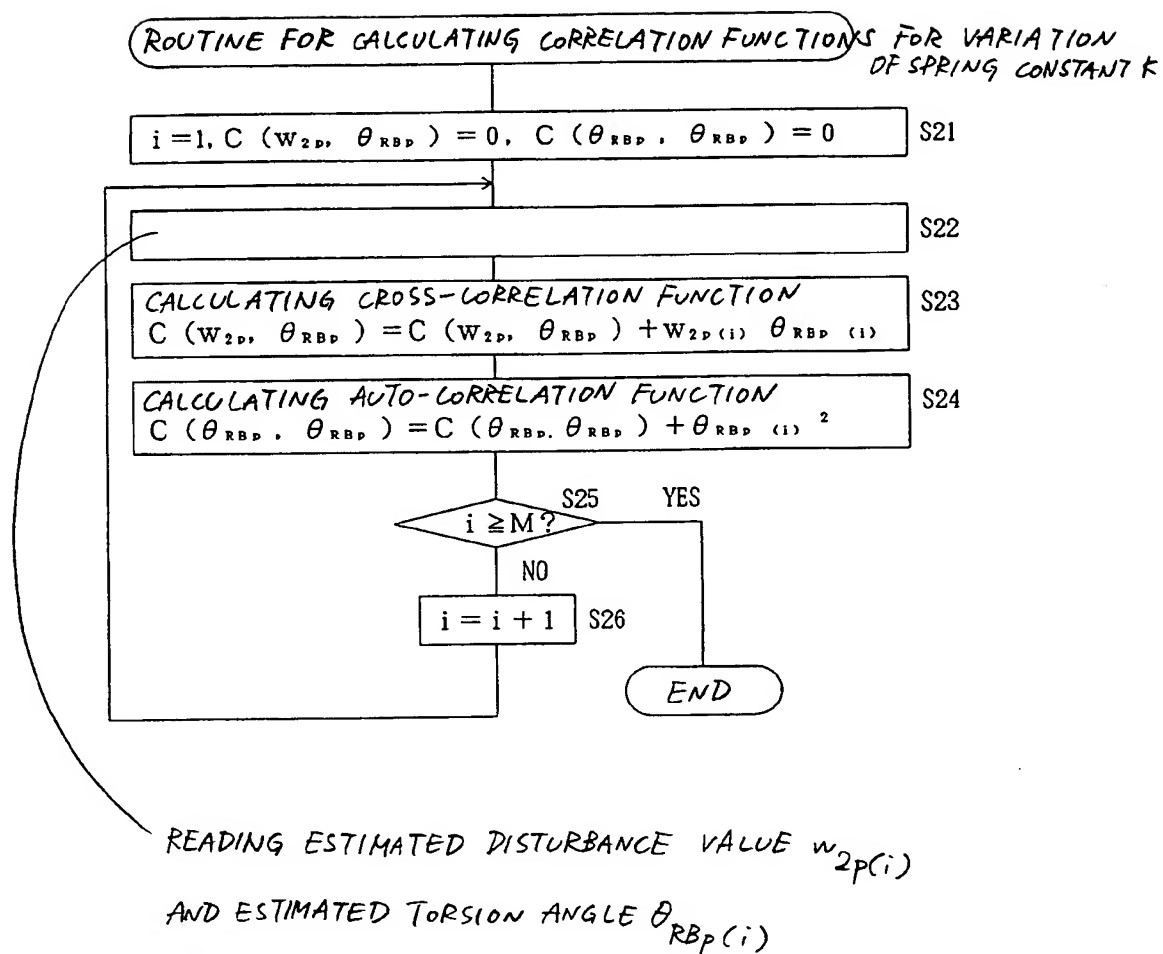 ROUTINE FOR CALCULATING CORRELATION FUNCTIONS FOR VARIATION
OF SPRING CONSTANT K
i=1, C (w₂ₚ, θ_RBp) = 0, C (θ_RBp, θ_RBp) = 0 S21
S22
CALCULATING CROSS-CORRELATION FUNCTION S23
C (w₂ₚ, θ_RBp) = C (w₂ₚ, θ_RBp) + w₂ₚ(i) θ_RBp (i)
CALCULATING AUTO-CORRELATION FUNCTION S24
C (θ_RBp, θ_RBp) = C (θ_RBp. θ_RBp) + θ_RBp (i) ²
S25 YES
i ≧ M?
NO
i = i + 1 S26
END
READING ESTIMATED DISTURBANCE VALUE w₂ₚ(i)
AND ESTIMATED TORSION ANGLE θ_RBp(i)